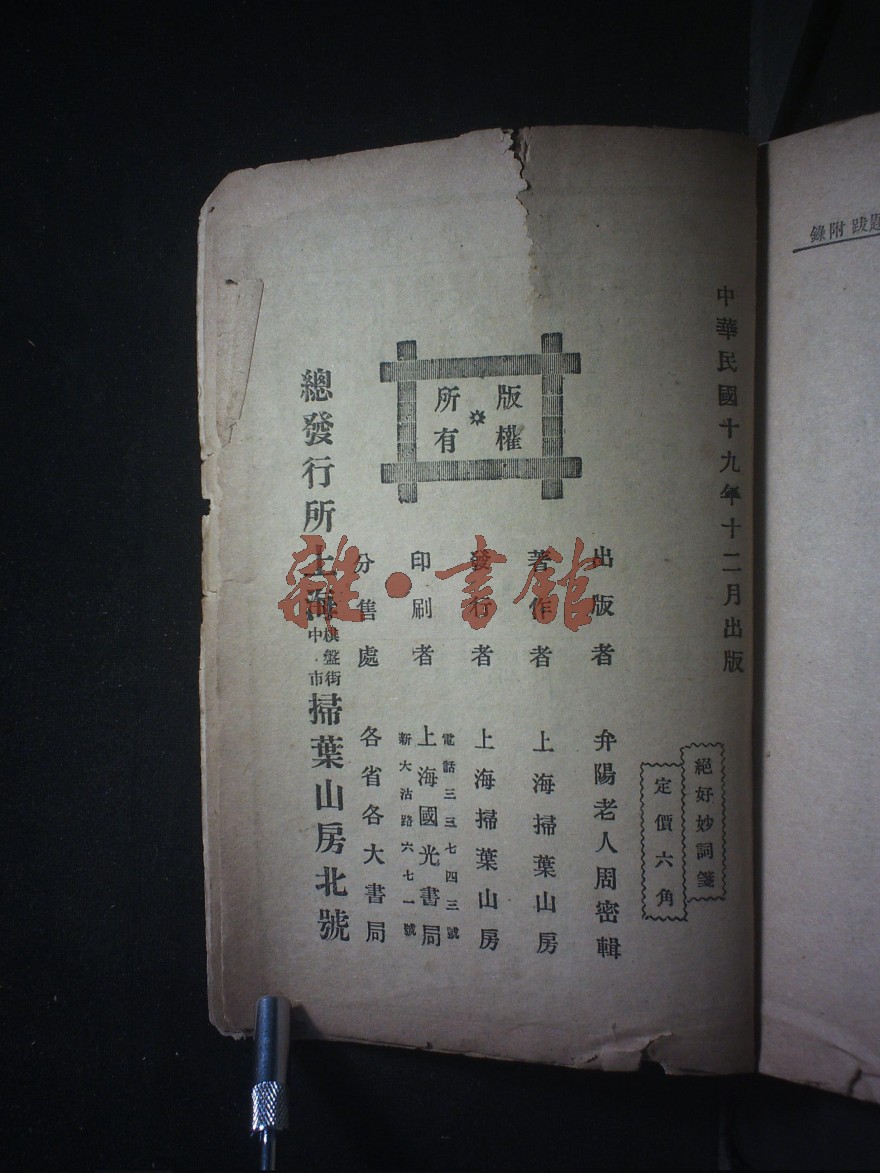 題跋附錄
中華民國十九年十二月出版
絕好妙詞箋
定價六角
出版者　弁陽老人周密輯
著作者　上海掃葉山房
發行者　上海掃葉山房
印刷者　上海國光書局
電話三三七四三號
新大沽路六七一號
分售處　各省各大書局
總發行所上海棋盤街中市掃葉山房北號
版權所有
雜·書館